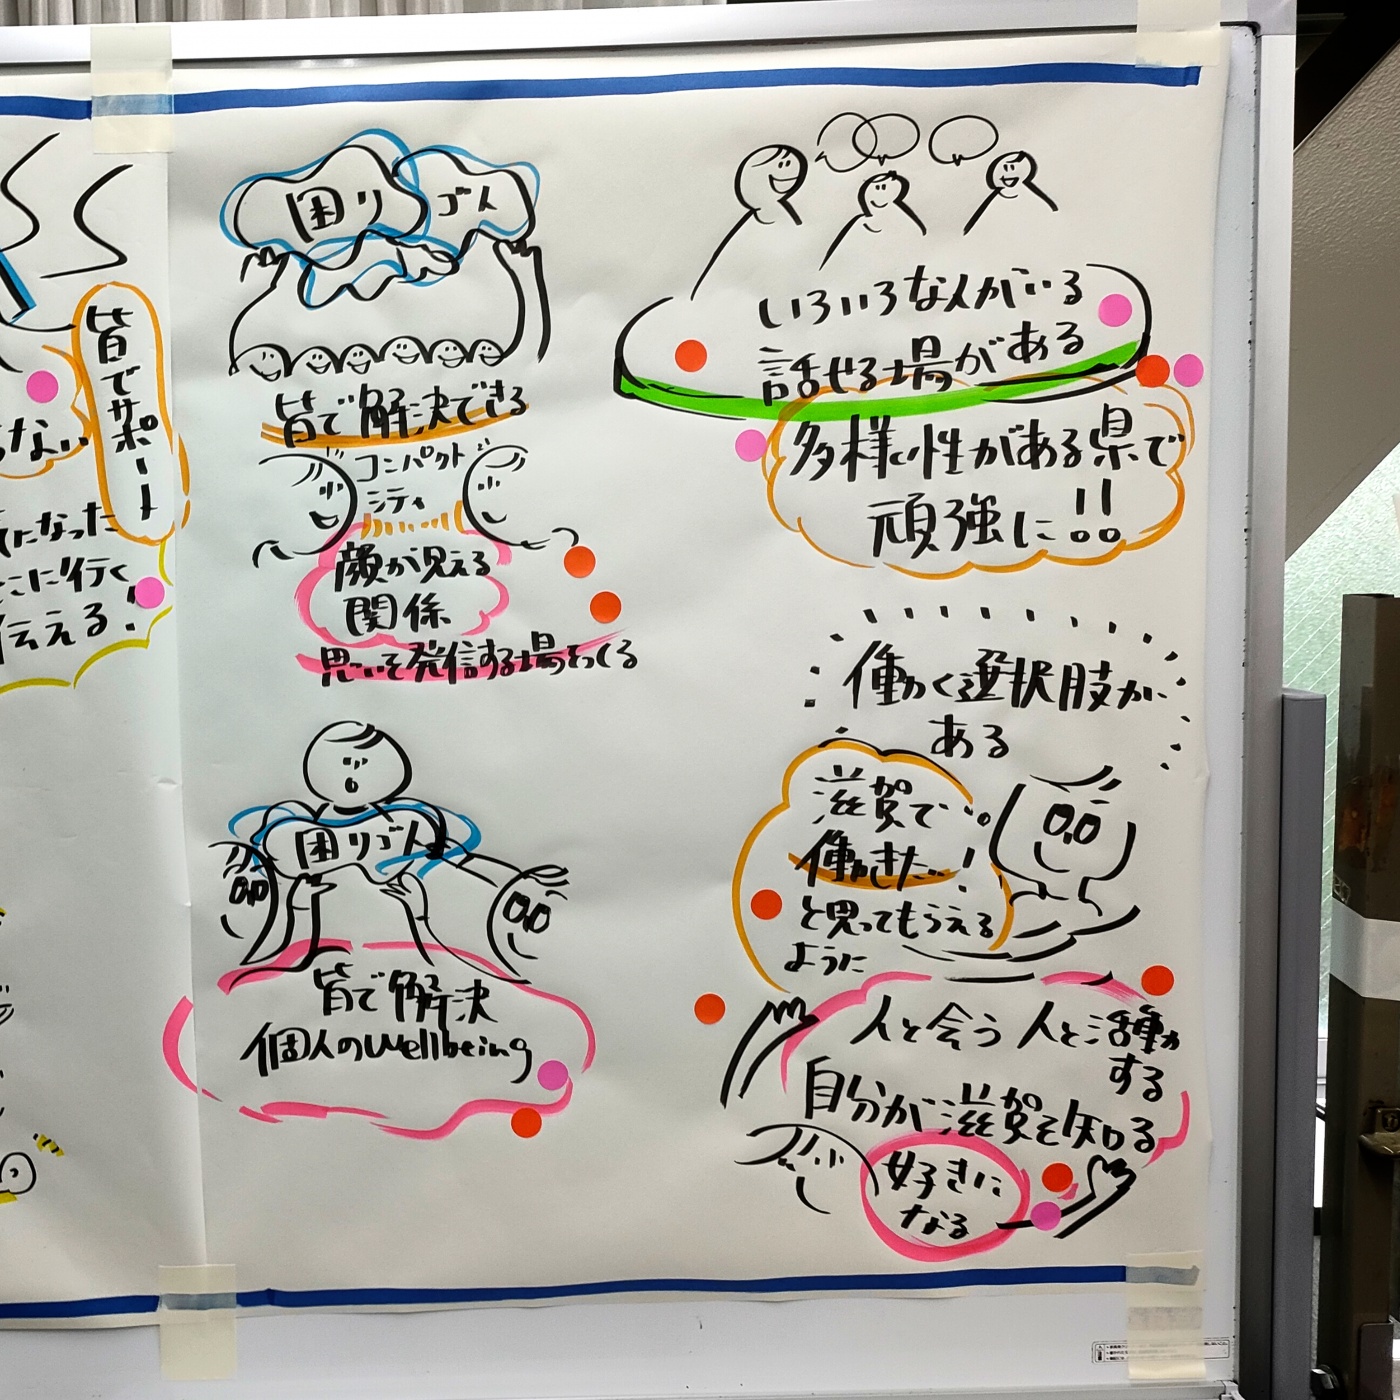 皆でサポート
ない
になった
に行く
伝える!
困りゴト
皆で解決できる
コンパクト
シティ
顔が見える
関係
思いを発信する場をつくる
困りゴト
皆で解決
個人のwellbeing
いろいろな人がいる
話せる場がある
多様性がある県で
頑強に!!
働く選択肢が
ある
滋賀で
働きたい!
と思ってもらえる
ように
人と会う 人と活動
する
自分が滋賀を知る
好きに
なる